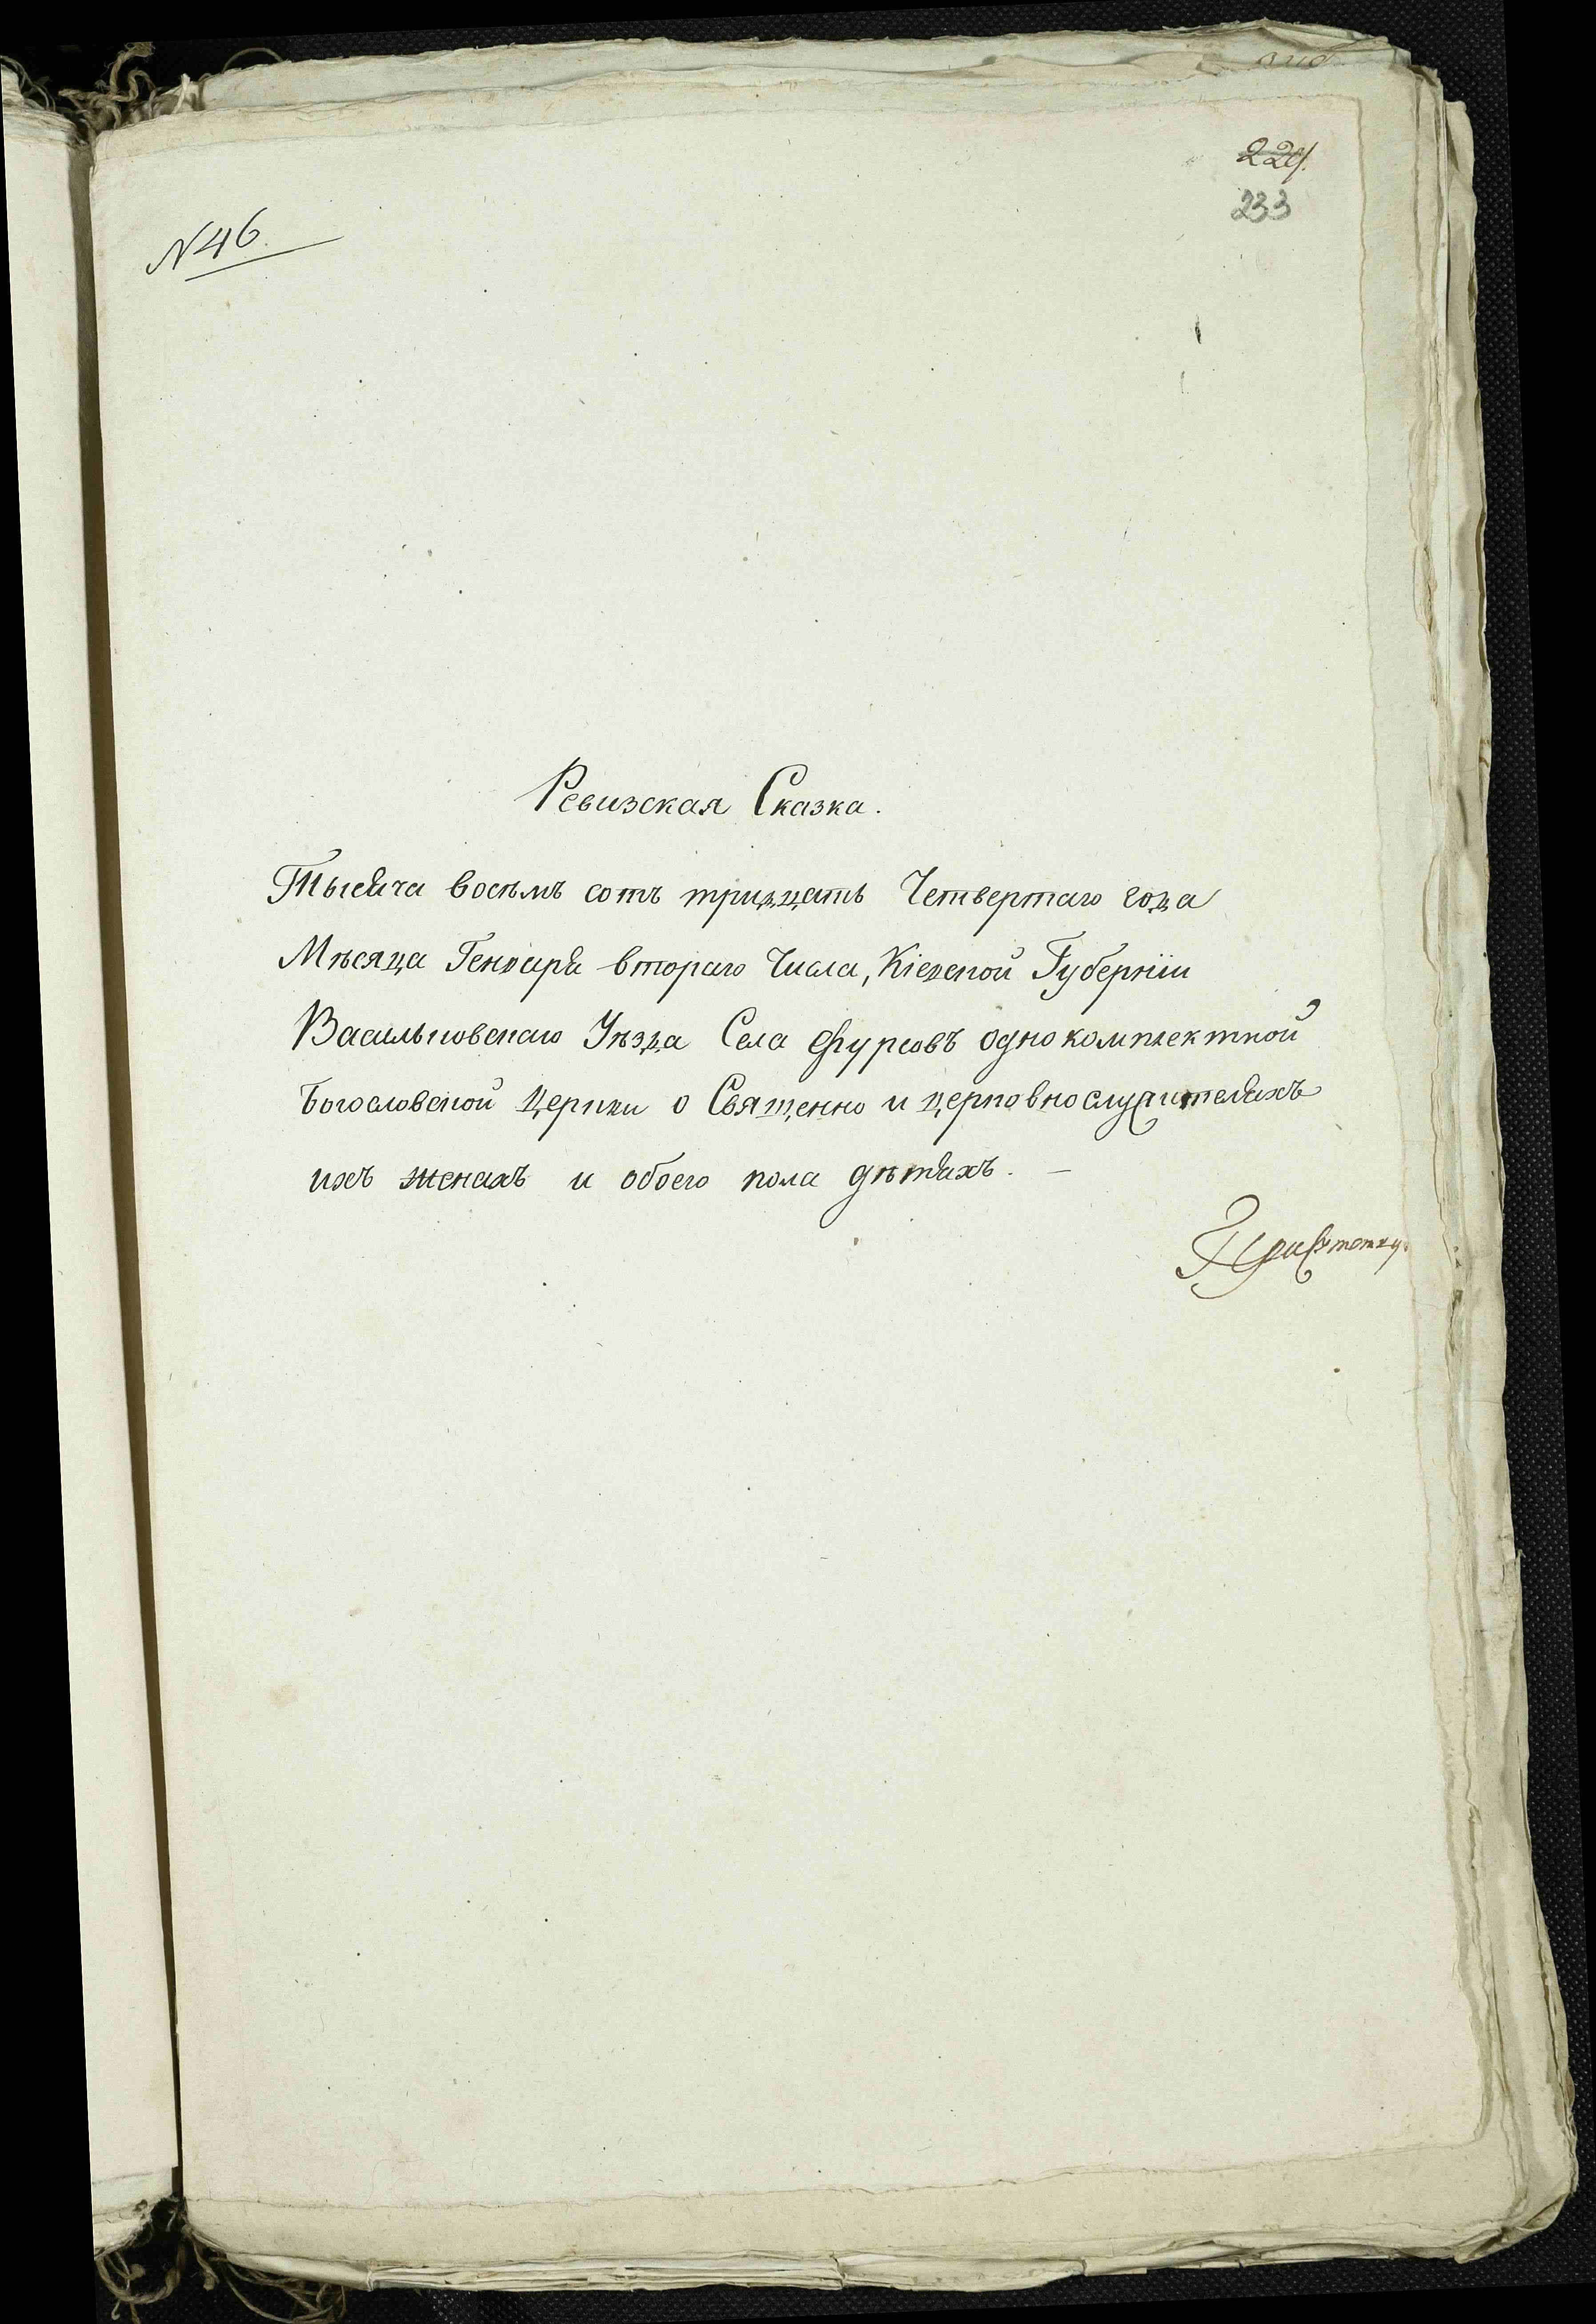 233
N 46.
Ревизская Сказка.
Тысяча восемъ сотъ тридцать Четвертаго года
Мѣсяца Генваря втораго Числа, Кіевской Губерніи
Васильковскаго Уѣзда Села Фурсовъ однокомплектной
Богословской Церкви о Священно и церковнослужителяхъ
ихъ женахъ и обоего пола дѣтяхъ. —